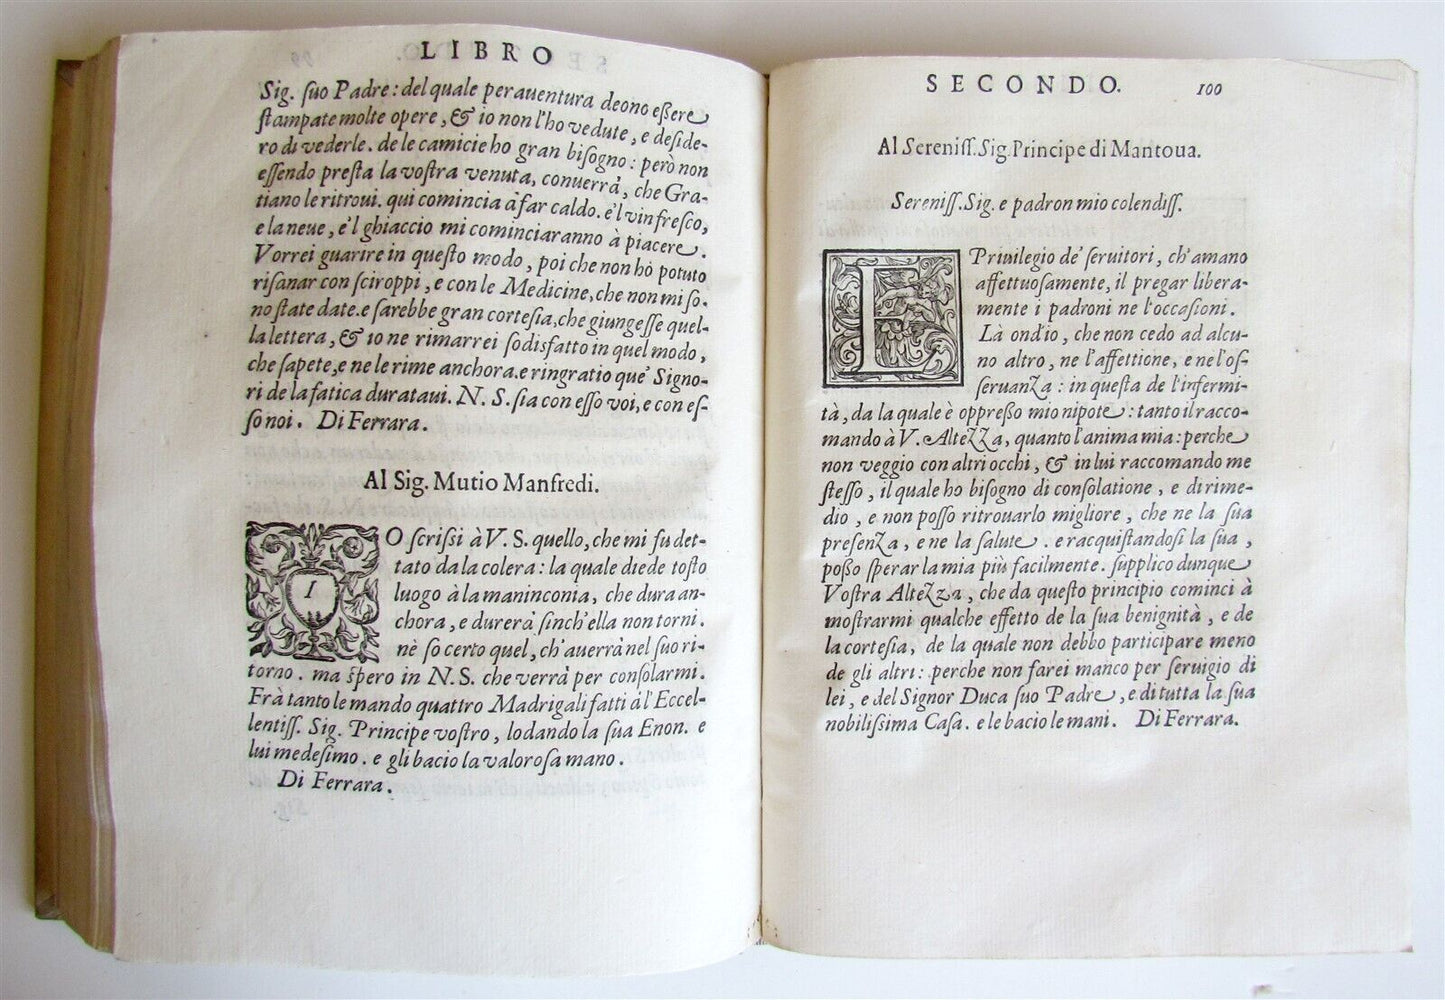 LIBRO
Sig. ſuo Padre : del quale perauentura deono eßere
ſtampate molte opere , & io non l'ho vedute, e deſide-
ro di vederle. de le camicie ho gran biſogno : però non
eſſendo preſta la voſtra venuta, conuerrà, che Gra-
tiano le ritroui. qui comincia à far caldo. e'l vin freſco,
e la neue, e'l ghiaccio mi cominciaranno à piacere.
Vorrei guarire in queſto modo, poi che non hò potuto
riſanar con ſciroppi , e con le Medicine, che non mi ſo-
no ſtate date. e ſarebbe gran corteſia, che giungeſſe quel-
la lettera , & io ne rimarrei ſodisfatto in quel modo,
che ſapete, e ne le rime anchora. e ringratio que' Signo-
ri de la fatica durataui. N. S. ſia con eſſo voi, e con eſ-
ſo noi. Di Ferrara.
Al Sig. Mutio Manfredi.
IO ſcriſſi à V. S. quello, che mi fu det-
tato da la colera : la quale diede toſto
luogo à la maninconia, che dura an-
chora, e durerà ſinch'ella non torni.
nè ſo certo quel, ch'auerrà nel ſuo ri-
torno. ma ſpero in N. S. che verrà per conſolarmi.
Frà tanto le mando quattro Madrigali fatti à l'Eccel-
lentiſſ. Sig. Principe voſtro, lodando la ſua Enon. e
lui medeſimo. e gli bacio la valoroſa mano.
Di Ferrara.
SECONDO. 100
Al Sereniſſ. Sig. Principe di Mantoua.
Sereniſſ. Sig. e padron mio colendiſſ.
E Priuilegio de' ſeruitori, ch'amano
affettuoſamente, il pregar libera-
mente i padroni ne l'occaſioni.
Là ond'io, che non cedo ad alcu-
no altro, ne l'affettione, e ne l'oſ-
ſeruanza : in queſta de l'infermi-
tà, da la quale è oppreßo mio nipote : tanto il racco-
mando à V. Altezza, quanto l'anima mia : perche
non veggio con altri occhi, & in lui raccomando me
ſteſſo , il quale ho biſogno di conſolatione , e di rime-
dio , e non poſſo ritrouarlo migliore , che ne la ſua
preſenza , e ne la ſalute . e racquiſtandoſi la ſua ,
poßo ſperar la mia più facilmente. ſupplico dunque
Voſtra Altezza, che da queſto principio cominci à
moſtrarmi qualche effetto de la ſua benignità , e de
la corteſia, de la quale non debbo participare meno
de gli altri : perche non farei manco per ſeruigio di
lei, e del Signor Duca ſuo Padre, e di tutta la ſua
nobiliſſima Caſa. e le bacio le mani. Di Ferrara.